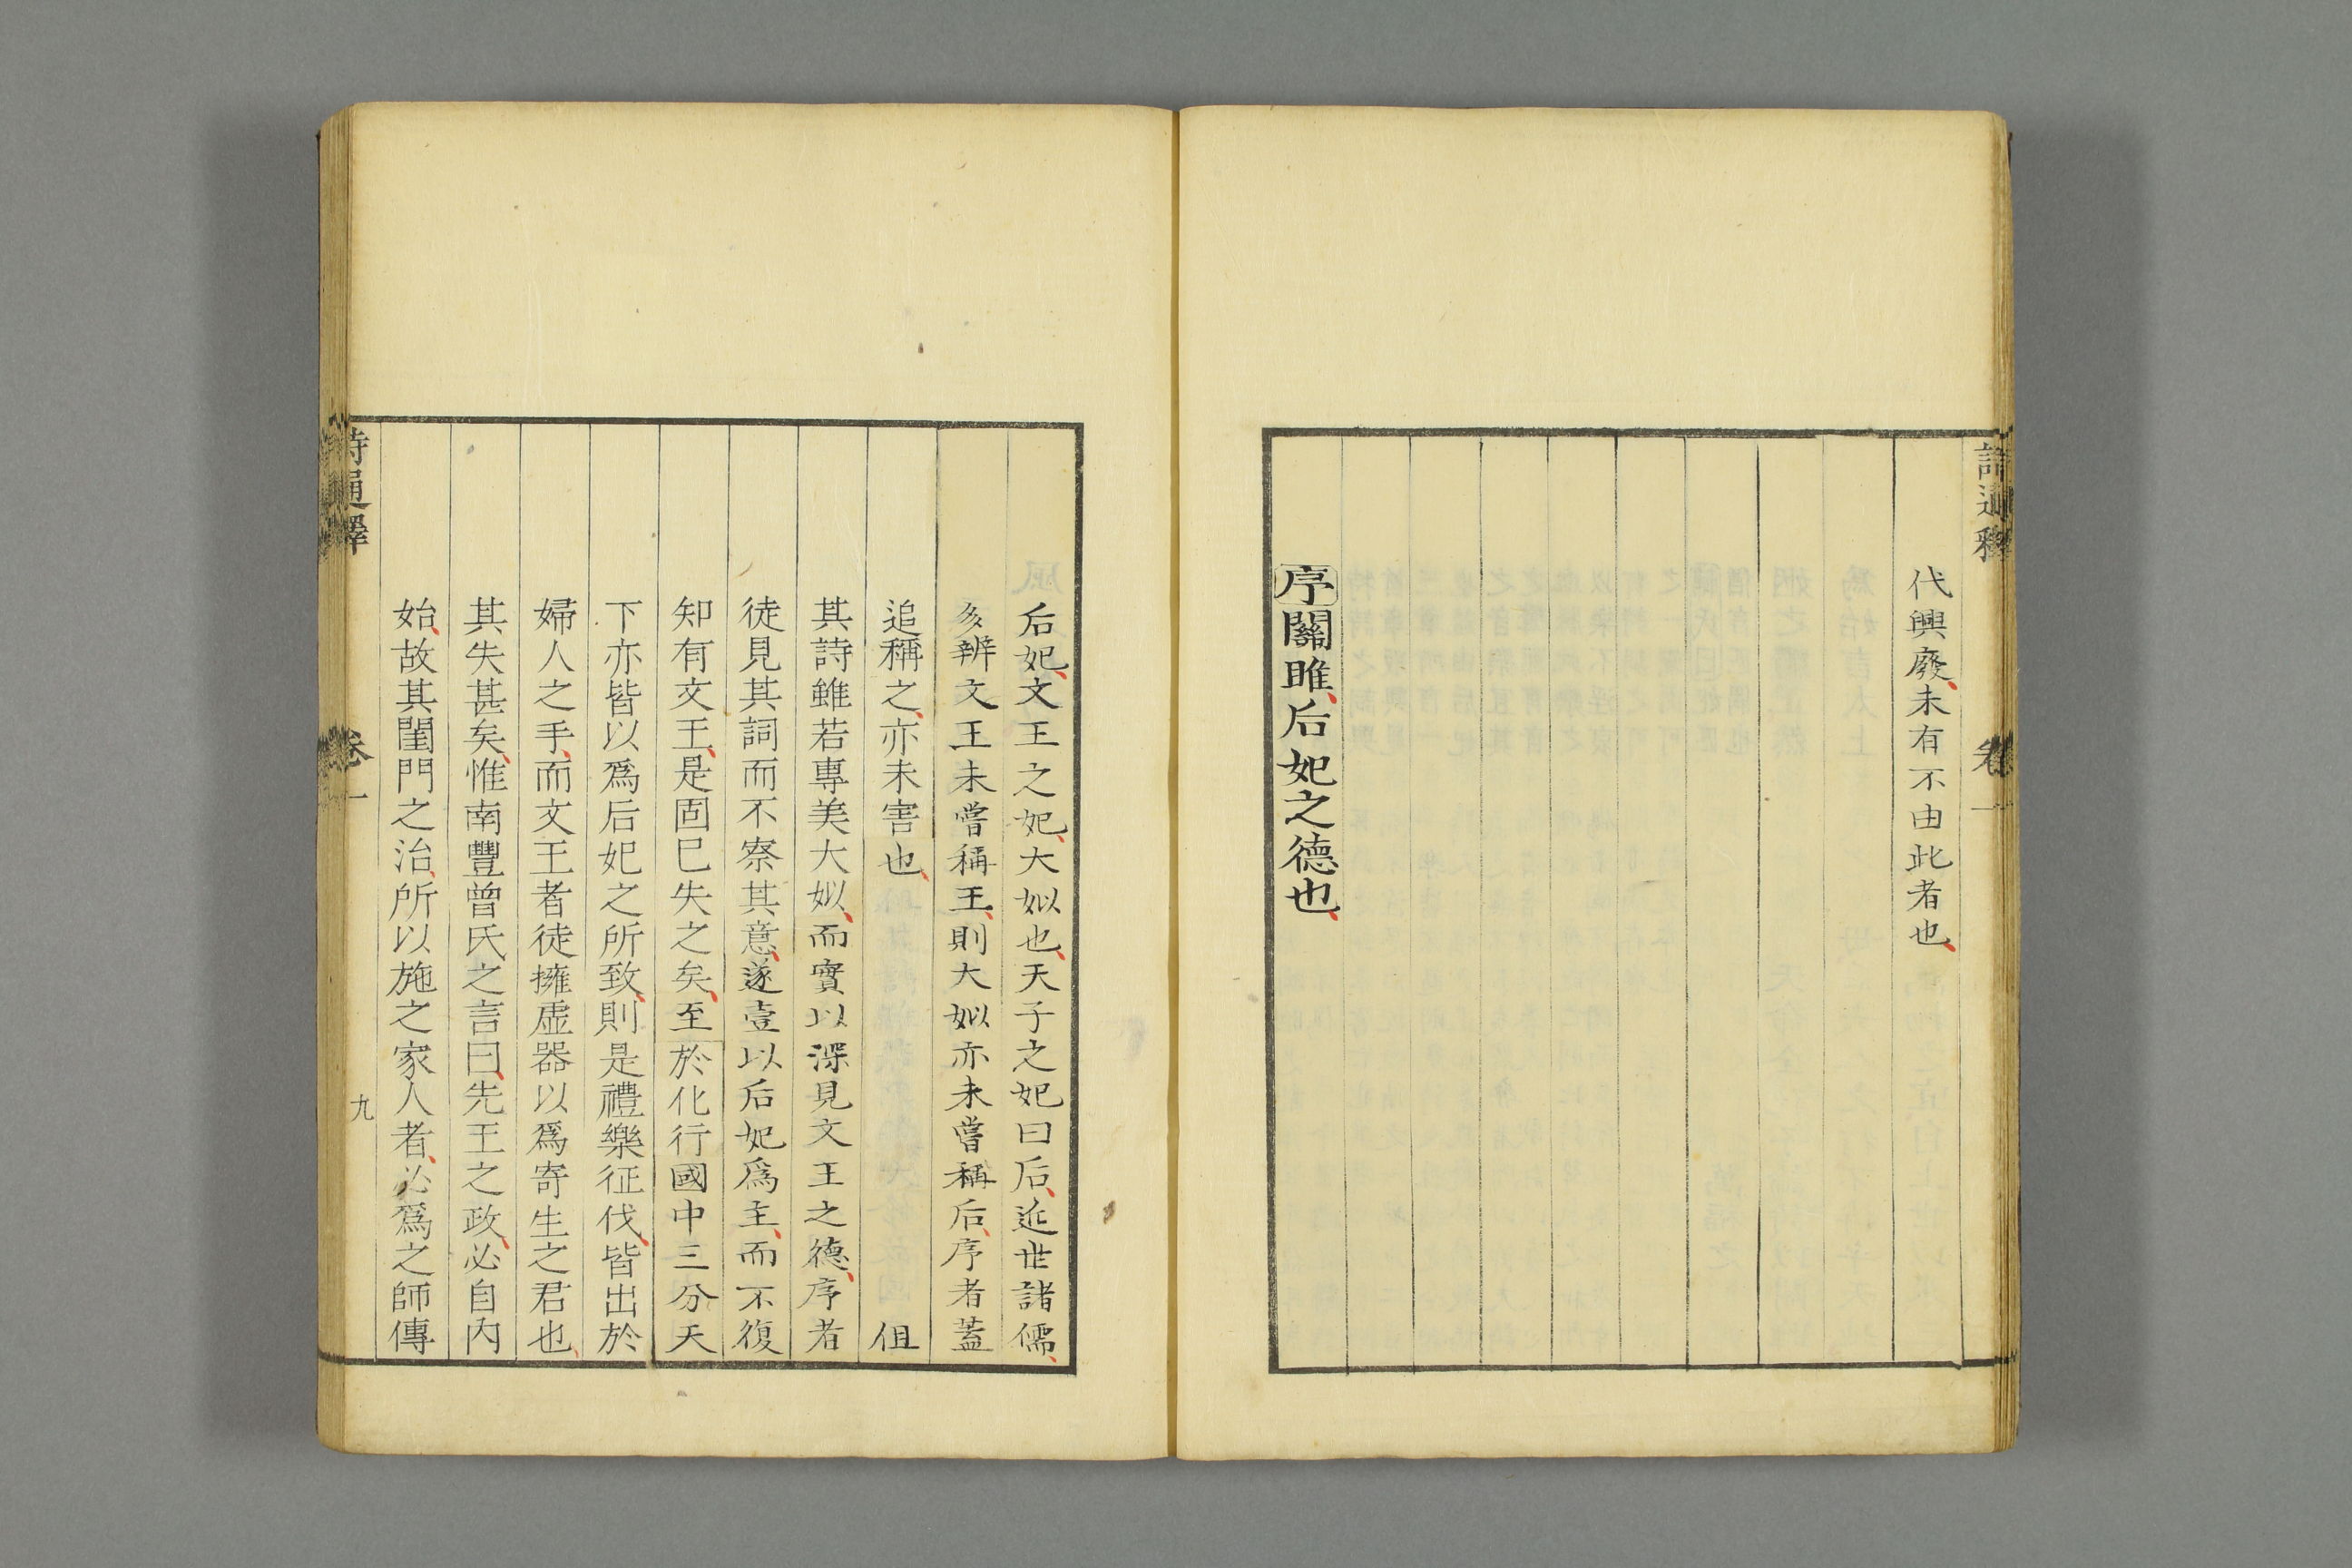 詩通釋 卷一
代興廢未有不由此者也
序關雎后妃之德也
后妃文王之妃大姒也天子之妃曰后近世諸儒
多辨文王未嘗稱王則大姒亦未嘗稱后序者蓋
追稱之亦未害也 但
其詩雖若專美大姒而實以深見文王之德序者
徒見其詞而不察其意遂壹以后妃爲主而不復
知有文王是固已失之矣至於化行國中三分天
下亦皆以爲后妃之所致則是禮樂征伐皆出於
婦人之手而文王者徒擁虛器以爲寄生之君也
其失甚矣惟南豐曾氏之言曰先王之政必自內
始故其閨門之治所以施之家人者必爲之師傳
詩通釋 卷一 九